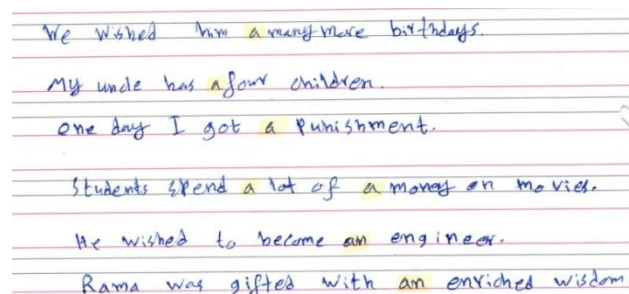 We wished him a many more birthdays.
My uncle has a four children.
One day I got a punishment.
Students spend a lot of a money on movies.
He wished to become an engineer.
Rama was gifted with an enriched wisdom